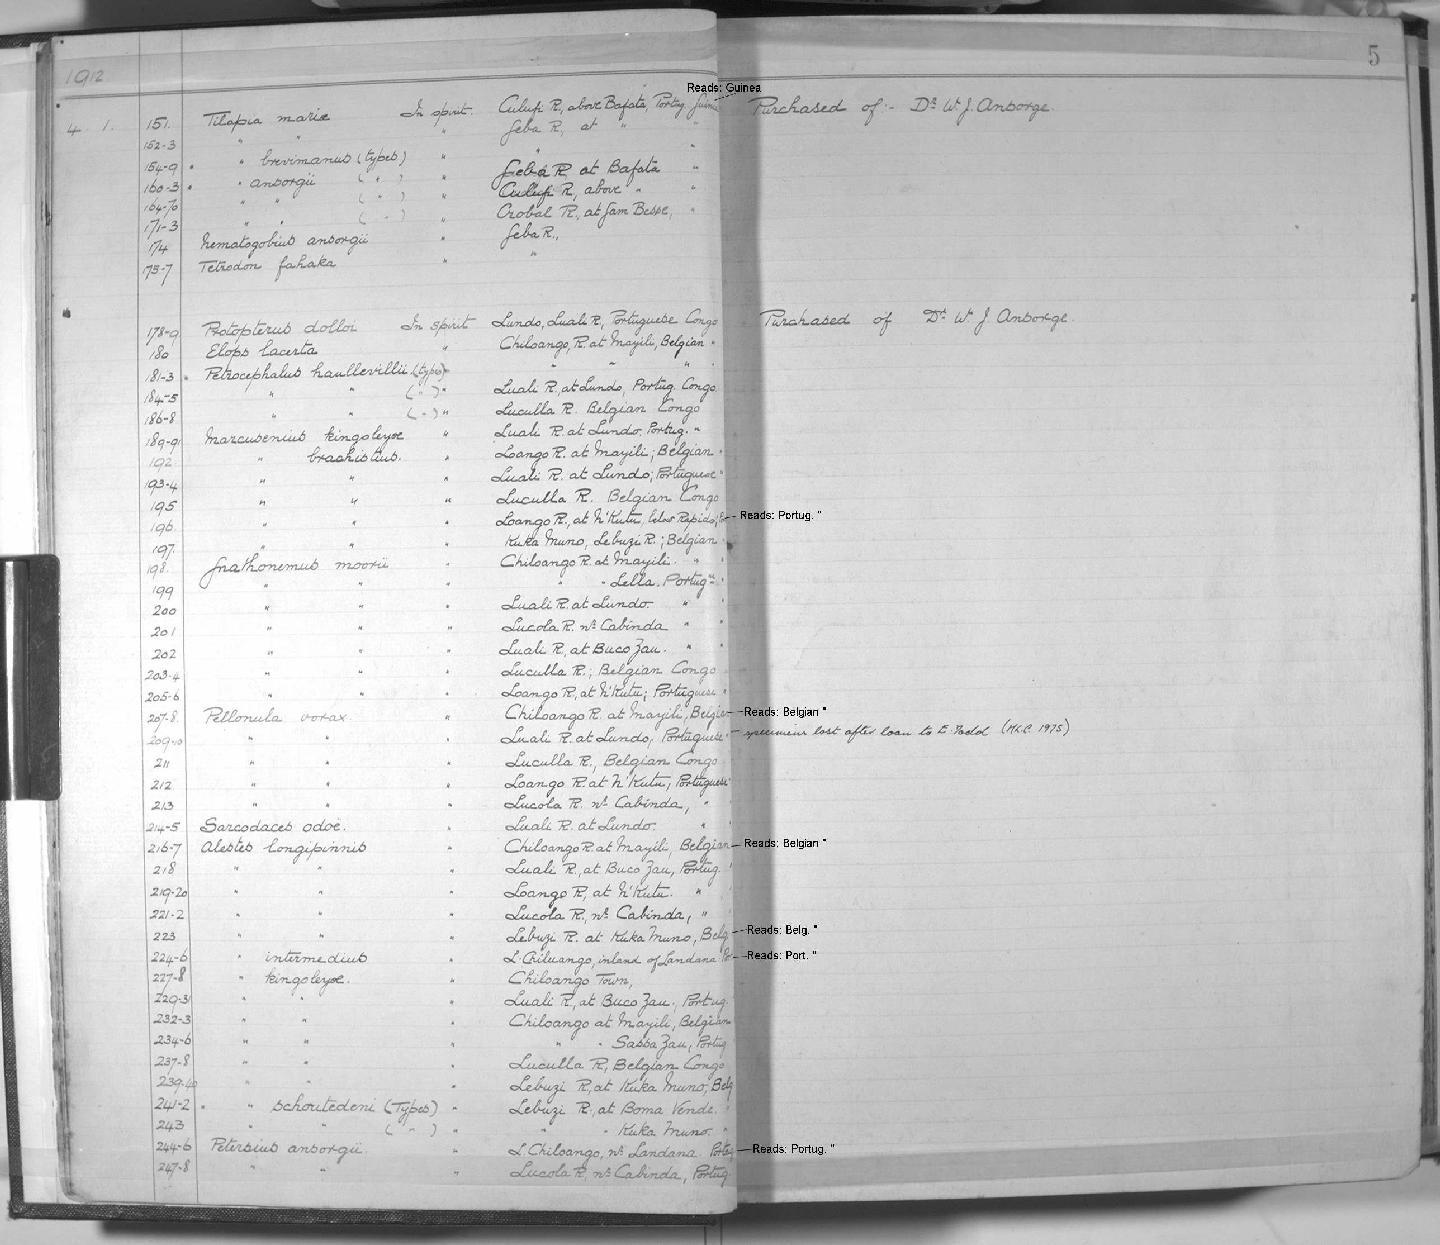 5
1912
Reads: Guinea
4. 1. 151. Tilapia mariæ In spirit. Culufi R, above Bafata, Portug. Guinea Purchased of:- Dr W. J. Ansorge.
152-3 " " Geba R, at " "
154-9 " brevimanus (types) " " "
160-3 " ansorgii ( " ) " Geba R, at Bafata "
164-70 " " ( " ) " Culufi R, above " "
171-3 " " ( " ) " Corobal R., at Jam Besse, "
174 Nematogobius ansorgii " Geba R.,
175-7 Tetrodon fahaka " "
178-9 Protopterus dolloi In spirit Lundo, Luali R, Portuguese Congo Purchased of Dr W J Ansorge.
180 Elops lacerta " Chiloango, R. at Mayili, Belgian "
181-3 Petrocephalus haullevillii (types) " " " "
184-5 " " ( " ) " Luali R., at Lundo, Portug. Congo
186-8 " " ( " ) " Luculla R. Belgian Congo
189-91 Marcusenius kingsleyæ " Luali R. at Lundo. Portug. "
192 " brachistius. " Loango R. at Mayili; Belgian "
193-4 " " " Luali R. at Lundo; Portuguese "
195 " " " Luculla R. Belgian Congo
196 " " " Loango R., at N'Kutu, below Rapids; Po Reads: Portug. "
197. " " " Kuka Muno, Lebuzi R.; Belgian "
198. Gnathonemus moorii " Chiloango R. at Mayili. " "
199 " " " " " Lella. Portug. "
200 " " " Luali R. at Lundo. " "
201 " " " Lucola R. nr Cabinda " "
202 " " " Luali R, at Buco Zau. " "
203-4 " " " Luculla R.; Belgian Congo
205-6 " " " Loango R, at N'Kutu; Portuguese "
207-8. Pellonula vorax. " Chiloango R. at Mayili, Belgian Reads: Belgian "
209-10 " " " Luali R. at Lundo, Portuguese " specimens lost after loan to E. Todd (M.L.C. 1975)
211 " " " Luculla R., Belgian Congo
212 " " " Loango R. at N'Kutu, Portuguese "
213 " " " Lucola R. nr Cabinda, " "
214-5 Sarcodaces odoë. " Luali R. at Lundo. " "
216-7 Alestes longipinnis " Chiloango R. at Mayili, Belgian Reads: Belgian "
218 " " " Luali R, at Buco Zau, Portug. "
219-20 " " " Loango R, at N'Kutu. " "
221-2 " " " Lucola R., nr Cabinda, " "
223 " " " Lebuzi R. at Kuka Muno, Belg Reads: Belg. "
224-6 " intermedius " L. Chiluango, inland of Landana Por Reads: Port. "
227-8 " kingsleyæ. " Chiloango Town,
229-31 " " " Luali R, at Buco Zau., Portug.
232-3 " " " Chiloango at Mayili, Belgian
234-6 " " " " " Sassa Zau, Portug
237-8 " " " Luculla R, Belgian Congo
239-40 " " " Lebuzi R, at Kuka Muno, Belg
241-2 " schoutedeni (Types) " Lebuzi R., at Boma Vende. "
243 " " ( " ) " " " Kuka Muno. "
244-6 Petersius ansorgii. " L. Chiloango, nr Landana. Portug Reads: Portug. "
247-8 " " " Lucola R, nr Cabinda, Portug.